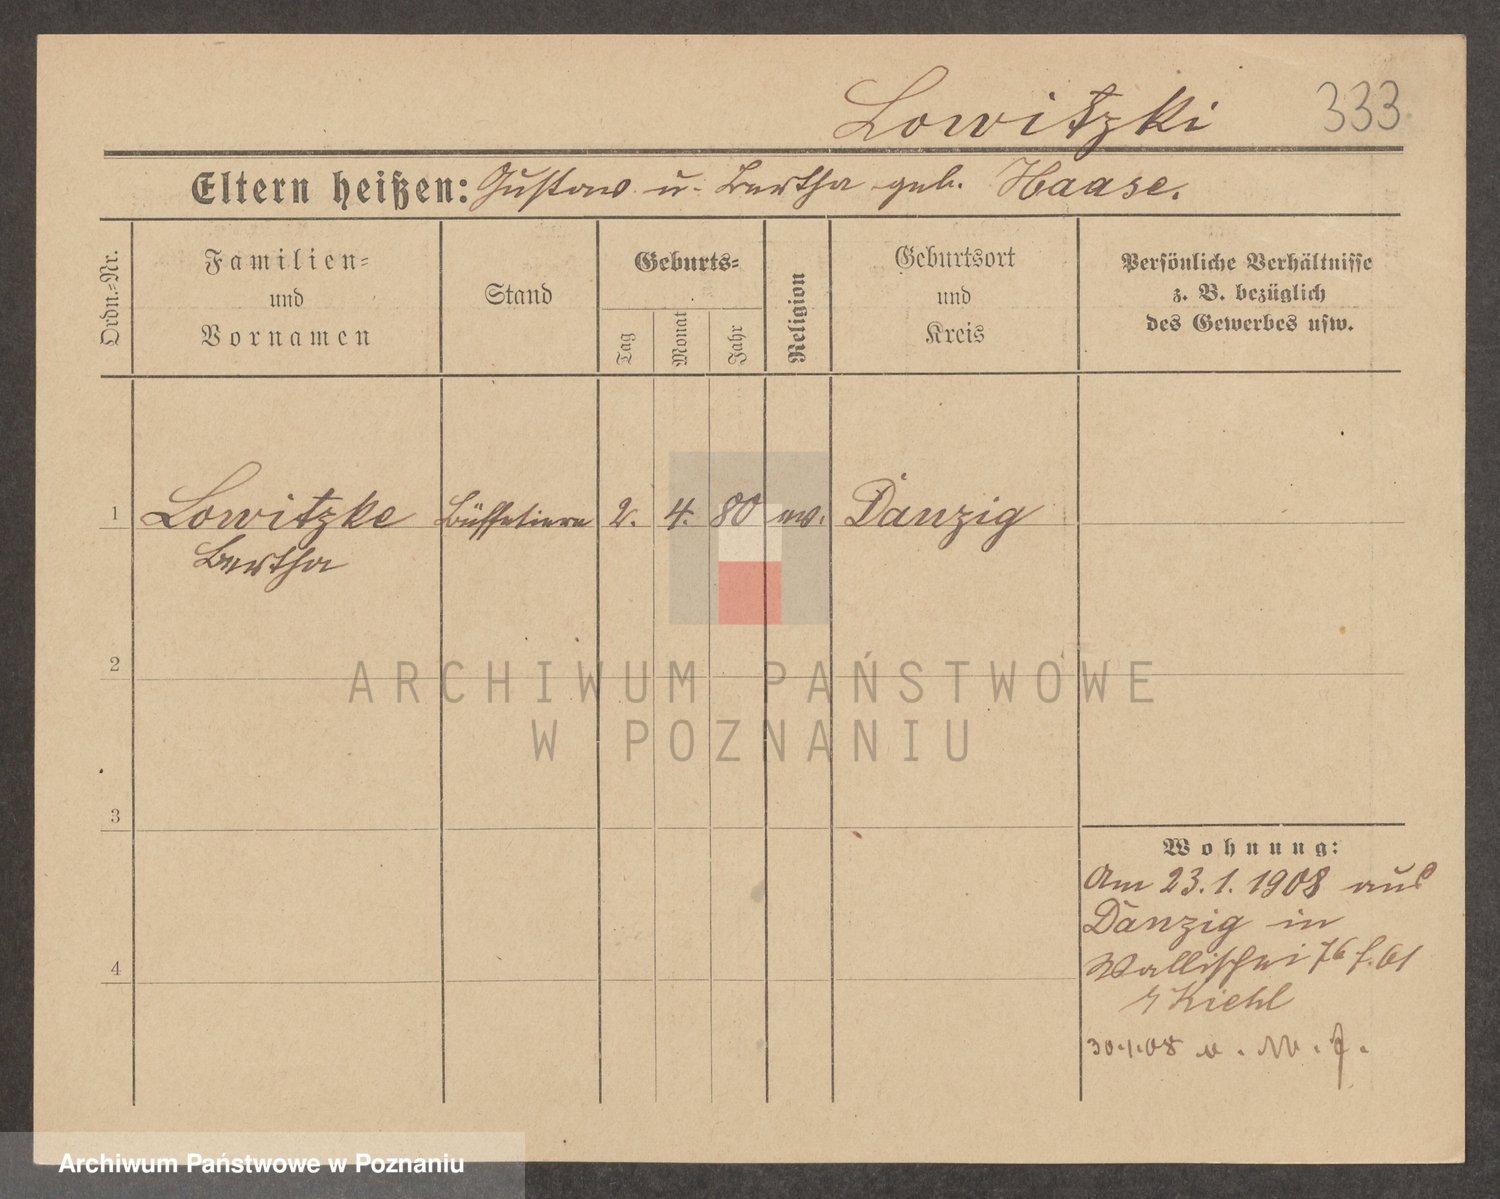 Lowitzki 333
Eltern heißen: Gustav u. Bertha geb. Haase.
Ordn.-Nr.
Familien-
und
Vornamen
Stand
Geburts-
Tag
Monat
Jahr
Religion
Geburtsort
und
Kreis
Persönliche Verhältnisse
z. B. bezüglich
des Gewerbes usw.
1 Lowitzke Büffetiere 2. 4. 80 ev. Danzig
Bertha
2
3
4
Wohnung:
Am 23.1.1908 aus
Danzig in
Wallischei 76
Kiehl
30.1.08
ARCHIWUM PAŃSTWOWE
W POZNANIU
Archiwum Państwowe w Poznaniu